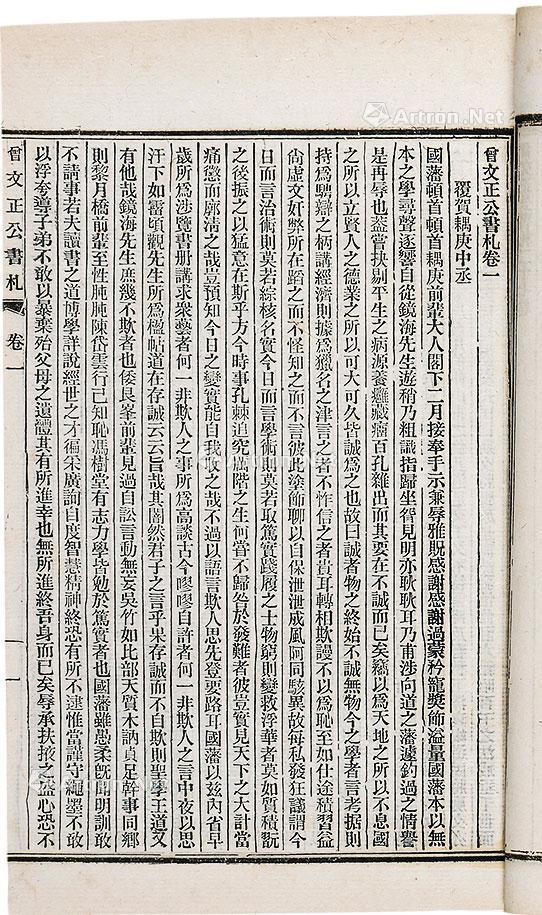 曾文正公書札卷一
覆賀耦庚中丞
國藩頓首頓首耦庚前輩大人閣下二月接奉手示兼辱雅貺感謝感謝過蒙矜寵奬飾溢量國藩本以無
本之學尋聲逐響自從鏡海先生遊稍乃粗識指歸坐眢見明亦耿耿耳乃甫涉向道之藩遽釣過之情譽
是再辱也蓋嘗抉剔平生之病源養癰藏瘤百孔雜出而其要在不誠而已矣竊以爲天地之所以不息國
之所以立賢人之德業之所以可大可久皆誠爲之也故曰誠者物之終始不誠無物今之學者言考据則
持爲騁辯之柄講經濟則據爲獵名之津言之者不怍信之者貴耳轉相欺謾不以爲恥至如仕途積習益
尙虛文奸弊所在蹈之而不怪知之而不言彼此塗飾聊以自保泄泄成風阿同駭異故每私發狂議謂今
日而言治術則莫若綜核名實今日而言學術則莫若取篤實踐履之士物窮則變救浮華者莫如質積翫
之後振之以猛意在斯乎方今時事孔棘追究厲階之生何嘗不歸咎於發難者彼豈實見天下之大計當
痛懲而廓淸之哉豈預知今日之變實能自我收之哉不過以語言欺人思先登要路耳國藩以茲內省早
歲所爲涉覽書册講求衆藝者何一非欺人之事所爲高談古今嘐嘐自許者何一非欺人之言中夜以思
汗下如霤頃觀先生所爲楹帖道在存誠云云旨哉其闇然君子之言乎果存誠而不自欺則聖學王道又
有他哉鏡海先生庶幾不欺者也倭艮峯前輩見過自訟言動無妄吳竹如比部天質木訥貞足幹事同鄉
則黎月橋前輩至性肫肫陳岱雲行己知恥馮樹堂有志力學皆勉於篤實者也國藩雖愚柔旣聞明訓敢
不請事若夫讀書之道博學詳說經世之才徧采廣詢自度智慧精神終恐有所不逮惟當謹守繩墨不敢
以浮夸導子弟不敢以暴棄殆父母之遺體其有所進幸也無所進終吾身而已矣辱承扶掖之盛心恐不
曾文正公書札
卷一
一
Artron.Net